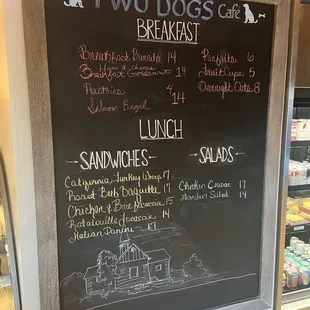 TWO DOGS Cafe
BREAKFAST
Breakfast Burrito 14
Ham & Cheese
Breakfast Croissant 14
Pastries 4
Salmon Bagel 14
Parfaits 6
Fruit Cups 5
Overnight Oats 8
LUNCH
SANDWICHES
California Turkey Wrap 17
Roast Beef Baguette 17
Chicken & Brie Focaccia 15
Ratatouille Focaccia 14
Italian Panini 17
SALADS
Chicken Caesar 17
Garden Salad 14